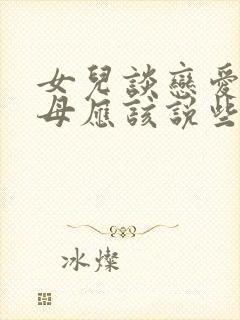 女兒談戀愛
母應該說些
冰燦